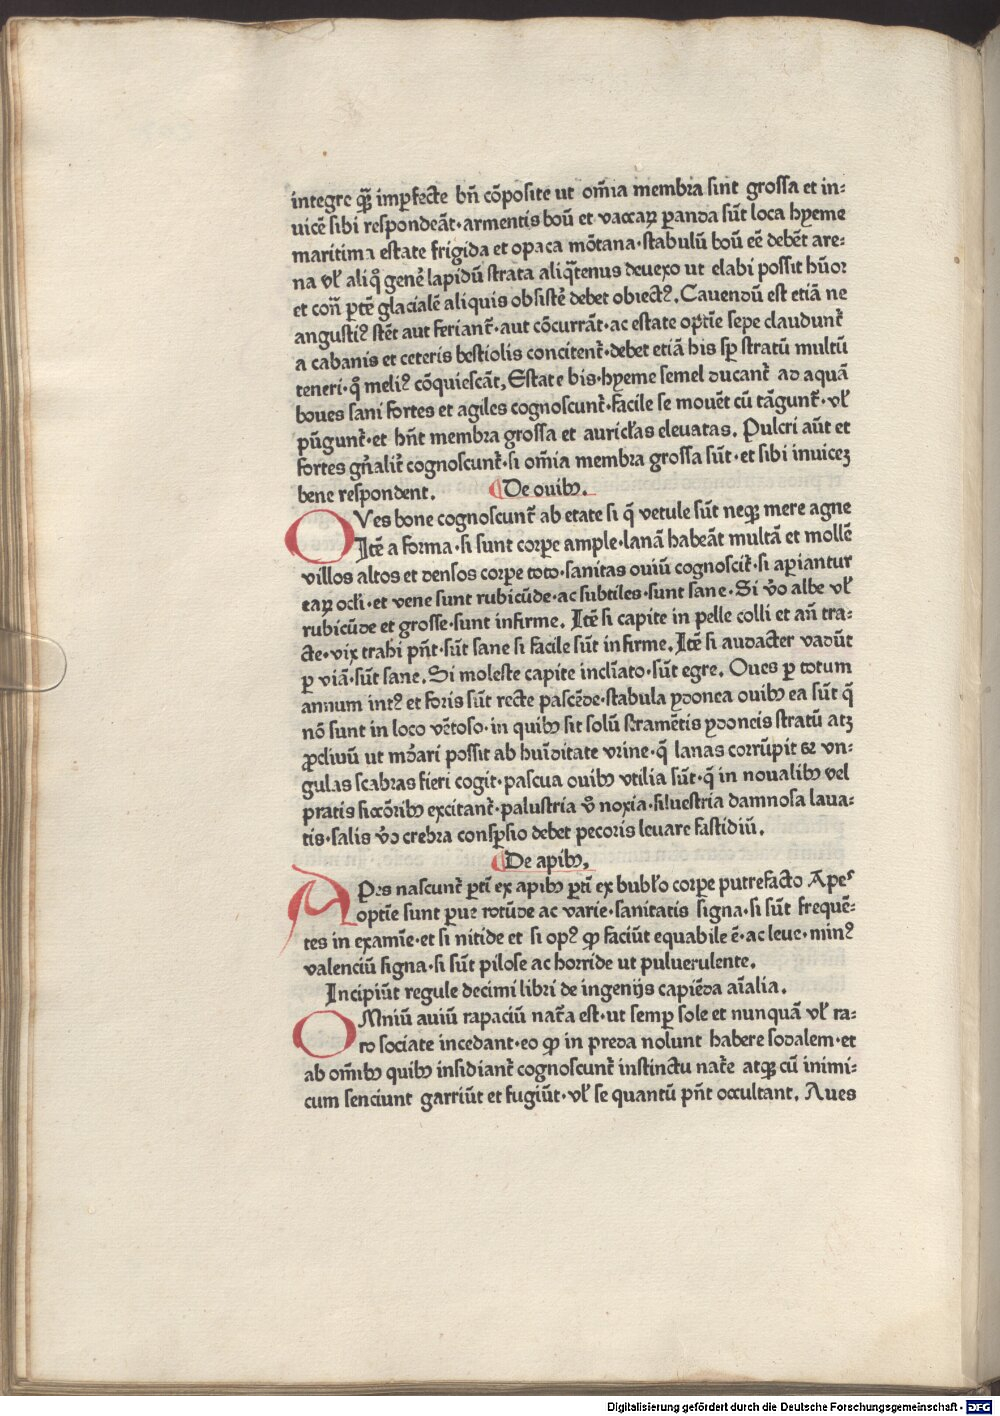 integre qȝ̄ imperfecte bñ cōposite ut om̄ia membra sint grossa et in⸗
uicē sibi respondeāt·armentis boū et vaccaꝝ ꝑanda sūt loca hyeme
maritima estate frigida et opaca mōtana·stabulū boū eē debēt are⸗
na vł aliq̊ gene᷑ lapidū strata aliq̄tenus deuexo ut elabi possit hūor
et con̄ ꝑtē glacialē aliquis obsiste᷑ debet obiectꝰ. Cauendū est etiā ne
angustiꝰ stēt aut feriant᷑·aut cōcurrāt·ac estate optīe sepe claudunt᷑
a cabanis et ceteris bestiolis concitent᷑·debet etiā his sꝑ stratū multū
teneri·q̊ meliꝰ cōquiescāt, Estate bis·hyeme semel ducant᷑ ad aquā
boues sani fortes et agiles cognoscunt᷑·facile se mouēt cū tāgunt᷑·vł
pūgunt᷑·et hn̄t membra grossa et auricłas eleuatas. Pulcri aūt et
fortes gn̄alit᷑ cognoscunt᷑·si om̄ia membra grossa sūt·et sibi inuiceȝ
bene respondent.    De ouibꝫ.
OVes bone cognoscunt᷑ ab etate si q̄ vetule sūt neqꝫ mere agne
Itē a forma·si sunt corpe ample·lanā habeāt multā et mollē
villos altos et densos corpe toto·sanitas ouiū cognoscit᷑·si aꝑiantur
eaꝝ ocłi·et vene sunt rubicūde·ac subtiles·sunt sane·Si v̊o albe vł
rubicūde et grosse·sunt infirme. Itē si capite in pelle colli et an̄ tra⸗
cte·vix trahi pn̄t·sūt sane si facile sūt infirme. Itē si audacter vadūt
ꝑ viā·sūt sane. Si moleste capite incliato·sūt egre. Oues ꝑ totum
annum intꝰ et foris sūt recte pascēde·stabula ydonea ouibꝫ ea sūt q̄
nō sunt in loco vētoso·in quibꝫ sit solū stramētis ydoneis stratū atꝫ
ꝓcliuū ut mūdari possit ab huīditate vrine·q̄ lanas corrūpit et vn⸗
gulas scabras fieri cogit·pascua ouibꝫ vtilia sūt·q̄ in noualibꝫ vel
pratis siccōribꝫ excitant᷑·palustria v̊ noxia·siluestria damnosa laua⸗
tis·salis v̊o crebra consꝑsio debet pecoris leuare fastidiū.
De apibꝫ,
APes nascunt᷑ ꝑtī ex apibꝫ ꝑtī ex bubło corpe putrefacto Apes
optīe sunt ꝑue rotūde ac varie·sanitatis signa·si sūt frequē⸗
tes in examīe·et si nitide et si opꝰ qꝫ faciūt equabile ē·ac leue·minꝰ
valenciū signa·si sūt pilose ac horride ut puluerulente.
Incipiūt regule decimi libri de ingenijs capiēda aīalia.
OMniū auiū rapaciū nat᷑a est·ut semꝑ sole et nunquā vł ra⸗
ro sociate incedant·eo qꝫ in preda nolunt habere sodalem·et
ab om̄ibꝫ quibꝫ insidiant᷑ cognoscunt᷑ instinctu nat᷑e atqꝫ cū inimi⸗
cum senciunt garriūt et fugiūt·vł se quantū pn̄t occultant. Aues
Digitalisierung gefördert durch die Deutsche Forschungsgemeinschaft · DFG